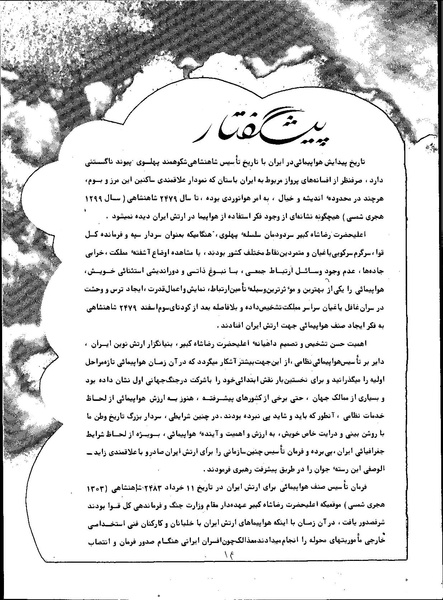 پیشگفتار
تاریخ پیدایش هواپیمائی در ایران با تاریخ تأسیس شاهنشاهی شکوهمند پهلوی پیوند ناگسستنی
دارد ، صرفنظر از افسانه‌های پرواز مربوط به ایران باستان که نمودار علاقمندی ساکنین این مرز و بوم ،
هرچند در محدوده اندیشه و خیال ، به امر هوانوردی بوده ، تا سال ۲۴۷۹ شاهنشاهی ( سال ۱۲۹۹
هجری شمسی ) هیچگونه نشانه‌ای از وجود فکر استفاده از هواپیما در ارتش ایران دیده نمیشود .
اعلیحضرت رضاشاه کبیر سردودمان سلسله پهلوی ، هنگامیکه بعنوان سردار سپه و فرمانده کل
قوا ، سرگرم سرکوبی یاغیان و متمردین نقاط مختلف کشور بودند ، با مشاهده اوضاع آشفته مملکت ، خرابی
جاده‌ها ، عدم وجود وسائل ارتباط جمعی ، با نبوغ ذاتی و دوراندیشی استثنائی خویش ،
هواپیمائی را یکی از بهترین و موثرترین وسیله تأمین ارتباط ، نمایش و اعمال قدرت ، ایجاد ترس و وحشت
در سران غافل یاغیان سراسر مملکت تشخیص داده و بلافاصله بعد از کودتای سوم اسفند ۲۴۷۹ شاهنشاهی
به فکر ایجاد صنف هواپیمائی جهت ارتش ایران افتادند .
اهمیت حسن تشخیص و تصمیم داهیانه اعلیحضرت رضاشاه کبیر ، بنیانگزار ارتش نوین ایران ،
دایر بر تأسیس هواپیمائی نظامی ، از این جهت بیشتر آشکار میگردد که در آن زمان هواپیمائی تازه مراحل
اولیه را میگذرانید و برای نخستین بار نقش ابتدائی خود را باشرکت در جنگ جهانی اول نشان داده بود
و بسیاری از ممالک جهان ، حتی برخی از کشورهای پیشرفته ، هنوز به ارزش هواپیمائی از لحاظ
خدمات نظامی ، آنطور که باید و شاید پی نبرده بودند . در چنین شرایطی ، سردار بزرگ تاریخ وطن ما
با روشن بینی و درایت خاص خویش ، به ارزش و اهمیت و آینده هواپیمائی ، بویژه از لحاظ شرایط
جغرافیائی ایران ، پی برده و فرمان تأسیس چنین سازمانی را برای ارتش ایران صادر و با علاقمندی زاید ـ
الوصفی این رسته جوان را در طریق پیشرفت رهبری فرمودند .
فرمان تأسیس صنف هواپیمائی برای ارتش ایران در تاریخ ۱۱ خرداد ۲۴۸۳ شاهنشاهی ( ۱۳۰۳
هجری شمسی ) موقعیکه اعلیحضرت رضاشاه کبیر عهده‌دار مقام وزارت جنگ و فرماندهی کل قوا بودند
شرفصدور یافت ، در آن زمان با اینکه هواپیماهای ارتش ایران با خلبانان و کارکنان فنی استخدامی
خارجی مأموریتهای محوله را انجام میدادند معذالک چون افسران ایرانی هنگام صدور فرمان و انتصاب